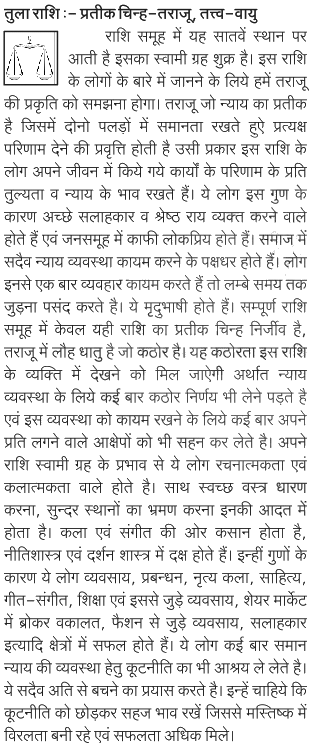 तुला राशि :– प्रतीक चिन्ह–तराजू, तत्त्व–वायु
राशि समूह में यह सातवें स्थान पर
आती है इसका स्वामी ग्रह शुक्र है। इस राशि
के लोगों के बारे में जानने के लिये हमें तराजू
की प्रकृति को समझना होगा। तराजू जो न्याय का प्रतीक
है जिसमें दोनो पलड़ों में समानता रखते हुऐ प्रत्यक्ष
परिणाम देने की प्रवृत्ति होती है उसी प्रकार इस राशि के
लोग अपने जीवन में किये गये कार्यों के परिणाम के प्रति
तुल्यता व न्याय के भाव रखते हैं। ये लोग इस गुण के
कारण अच्छे सलाहकार व श्रेष्ठ राय व्यक्त करने वाले
होते हैं एवं जनसमूह में काफी लोकप्रिय होते हैं। समाज में
सदैव न्याय व्यवस्था कायम करने के पक्षधर होते हैं। लोग
इनसे एक बार व्यवहार कायम करते हैं तो लम्बे समय तक
जुड़ना पसंद करते है। ये मृदुभाषी होते हैं। सम्पूर्ण राशि
समूह में केवल यही राशि का प्रतीक चिन्ह निर्जीव है,
तराजू में लौह धातु है जो कठोर है। यह कठोरता इस राशि
के व्यक्ति में देखने को मिल जाऐगी अर्थात न्याय
व्यवस्था के लिये कई बार कठोर निर्णय भी लेने पड़ते है
एवं इस व्यवस्था को कायम रखने के लिये कई बार अपने
प्रति लगने वाले आक्षेपों को भी सहन कर लेते है। अपने
राशि स्वामी ग्रह के प्रभाव से ये लोग रचनात्मकता एवं
कलात्मकता वाले होते है। साथ स्वच्छ वस्त्र धारण
करना, सुन्दर स्थानों का भ्रमण करना इनकी आदत में
होता है। कला एवं संगीत की ओर रूझान होता है,
नीतिशास्त्र एवं दर्शन शास्त्र में दक्ष होते हैं। इन्हीं गुणों के
कारण ये लोग व्यवसाय, प्रबन्धन, नृत्य कला, साहित्य,
गीत–संगीत, शिक्षा एवं इससे जुड़े व्यवसाय, शेयर मार्केट
में ब्रोकर वकालत, फैशन से जुड़े व्यवसाय, सलाहकार
इत्यादि क्षेत्रों में सफल होते हैं। ये लोग कई बार समान
न्याय की व्यवस्था हेतु कूटनीति का भी आश्रय ले लेते है।
ये सदैव अति से बचने का प्रयास करते है। इन्हें चाहिये कि
कूटनीति को छोड़कर सहज भाव रखें जिससे मस्तिष्क में
विरलता बनी रहे एवं सफलता अधिक मिले।